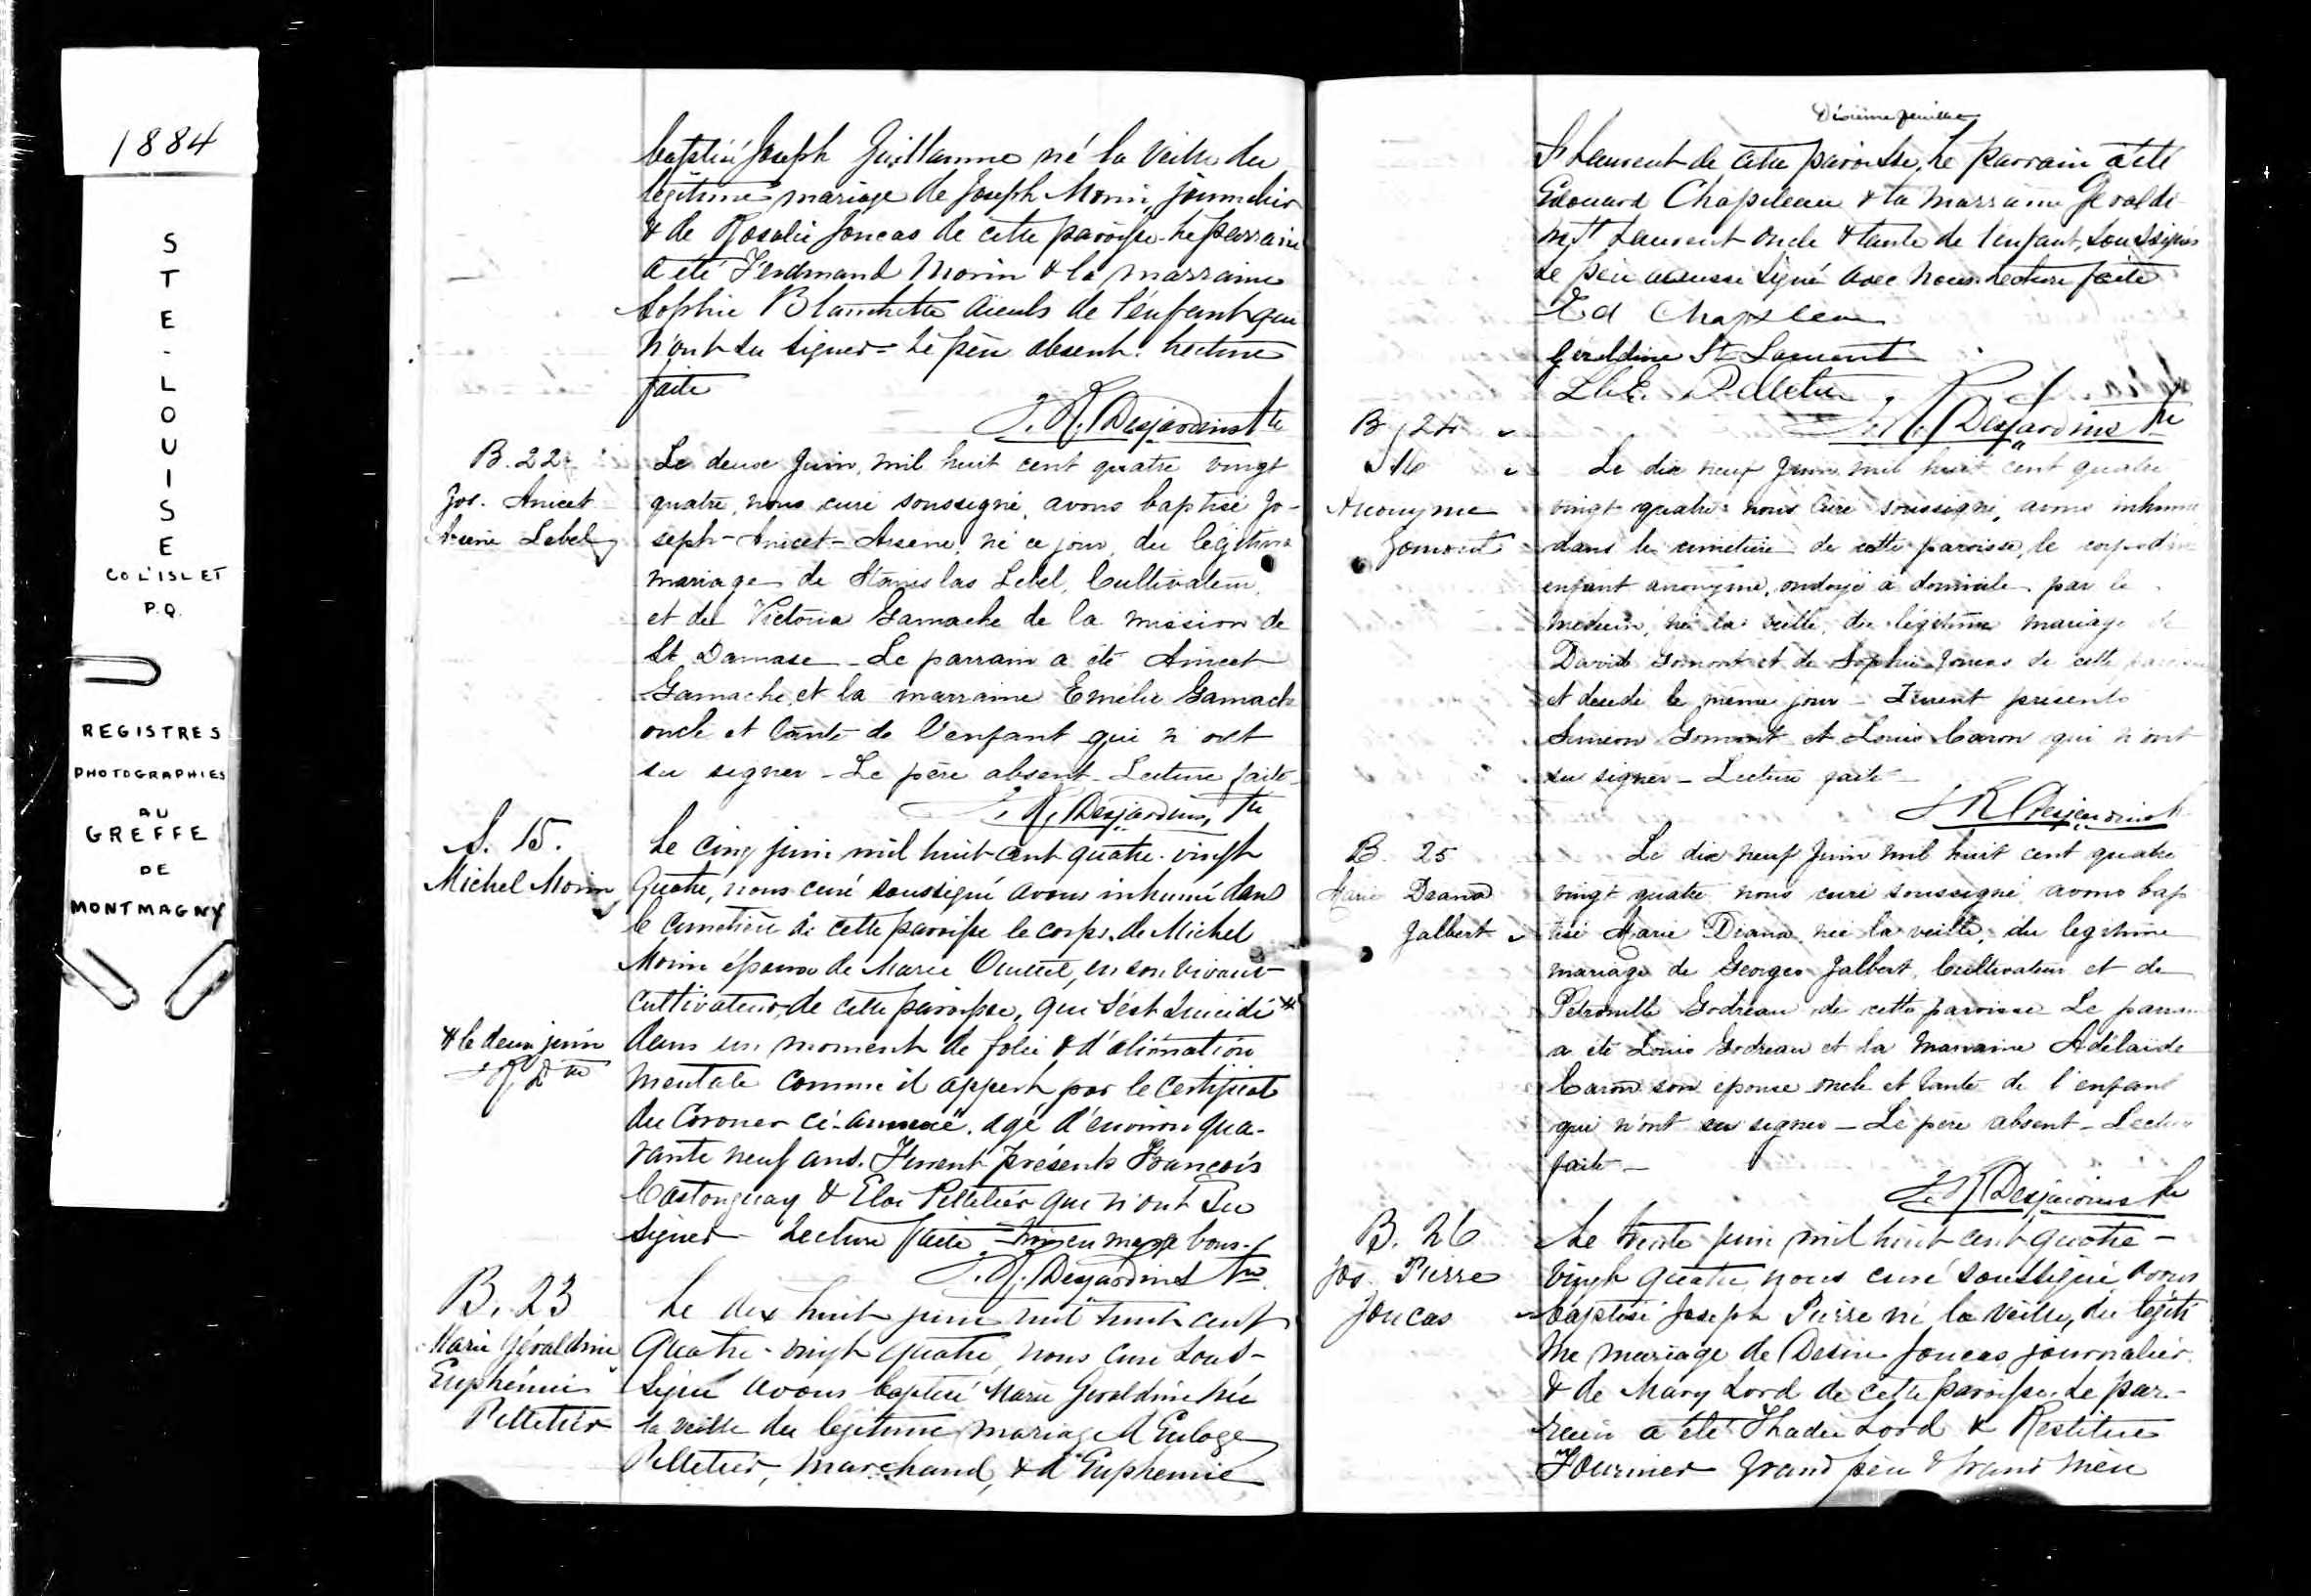 1884
STE-LOUISE
CO L'ISLET
P.Q.
REGISTRES
PHOTOGRAPHIES
AU
GREFFE
DE
MONTMAGNY
baptisé Joseph Guillaume né la veille du
légitime mariage de Joseph Morin, journalier
& de Rosalie Joncas de cette paroisse. Le parrain
a été Ferdinand Morin & la marraine
Sophie Blanchette aieuls de l'enfant qui
n'ont su signer = Le père absent. Lecture
faite
J. R. Desjardins Ptre
B. 22
Jos. Anicet
Arsène Lebel
Le deuse Juin, mil huit cent quatre vingt
quatre, nous curé soussigné, avons baptisé Jo-
seph-Anicet-Arsene, né ce jour, du légitime
mariage de Stanislas Lebel, Cultivateur,
et de Victoria Gamache de la mission de
St Damase - Le parrain a été Anicet
Gamache, et la marraine Emélie Gamache
oncle et tante de l'enfant qui n'ont
su signer - Le père absent - Lecture faite -
J. R. Desjardins, Ptre
S. 15.
Michel Morin
Le cinq juin mil huit cent quatre-vingt
quatre, nous curé soussigné avons inhumé dans
le cimetière de cette paroisse le corps de Michel
Morin époux de Marie Ouellet, en son vivant
cultivateur, de cette paroisse, qui s'est suicidé
& le deux juin
J. R. D Ptre
dans un moment de folie & d'aliénation
mentale comme il appert par le certificat
du Coroner ci-annexé. agé d'environ qua-
rante neuf ans. Furent présents François
Castonguay & Eloi Pelletier qui n'ont su
signer - Lecture faite. en marge bons.
J. R. Desjardins Ptre
B. 23
Marie Géraldine
Euphémie
Pelletier
Le dix huit juin mil huit cent
quatre-vingt quatre, nous curé sous-
signé avons baptisé Marie Geraldine née
la veille du légitime mariage d'Euloge
Pelletier, Marchand, & d'Euphémie
Dixième feuillet
St Laurent de cette paroisse. Le parrain a été
Edouard Chapleau & la marraine Geraldi-
ne St Laurent oncle & tante de l'enfant, soussignés
Le père a aussi signé avec nous. Lecture faite
Ed Chapleau
Géraldine St Laurent
L. E. Pelletier
J. R. Desjardins Ptre
B 24
S 16
Anonyme
Gomont
Le dix neuf Juin mil huit cent quatre
vingt quatre nous Curé soussigné, avons inhumé
dans le cimetière de cette paroisse, le corps d'un
enfant anonyme, ondoyé à domicile par le
médecin, né la veille, du légitime mariage de
David Gomont et de Sophie Joncas de cette paroisse
et décédé le même jour - Furent présents
Siméon Gomont et Louis Caron qui n'ont
su signer - Lecture faite -
J R Desjardins Ptre
B. 25
Marie Diana
Jalbert
Le dix neuf Juin mil huit cent quatre
vingt quatre nous curé soussigné avons bap
tisé Marie Diana, née la veille, du legitime
mariage de Georges Jalbert, Cultivateur et de
Petronille Godreau de cette paroisse Le parrain
a été Louis Godreau et la Marraine Adélaïde
Caron son épouse oncle et tante de l'enfant
qui n'ont su signer - Le père absent - Lecture
faite -
J. R. Desjardins Ptre
B. 26
Jos. Pierre
Joncas
Le trente juin mil huit cent quatre-
vingt quatre nous curé soussigné avons
baptisé Joseph Pierre né la veille, du légiti
me mariage de Desiré Joncas journalier
& de Mary Lord de cette paroisse. Le par-
rain a été Thadée Lord & Restitue
Fournier grand père & grand mère